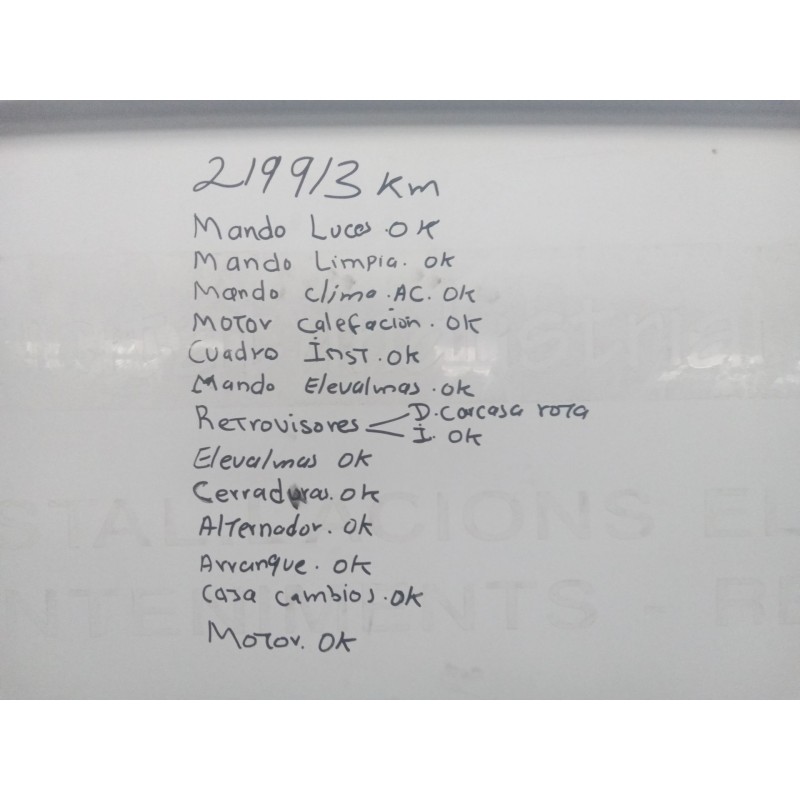 219913 Km
Mando Luces. OK
Mando Limpia. OK
Mando clima. AC. OK
Motor calefacion. OK
Cuadro Inst. OK
Mando Elevalunas. OK
Retrovisores D. Carcasa rota
I. OK
Elevalunas OK
Cerraduras. OK
Alternador. OK
Arranque. OK
Casa cambios. OK
Motor. OK
STAL·LACIONS EL
NTENIMENTS - RE